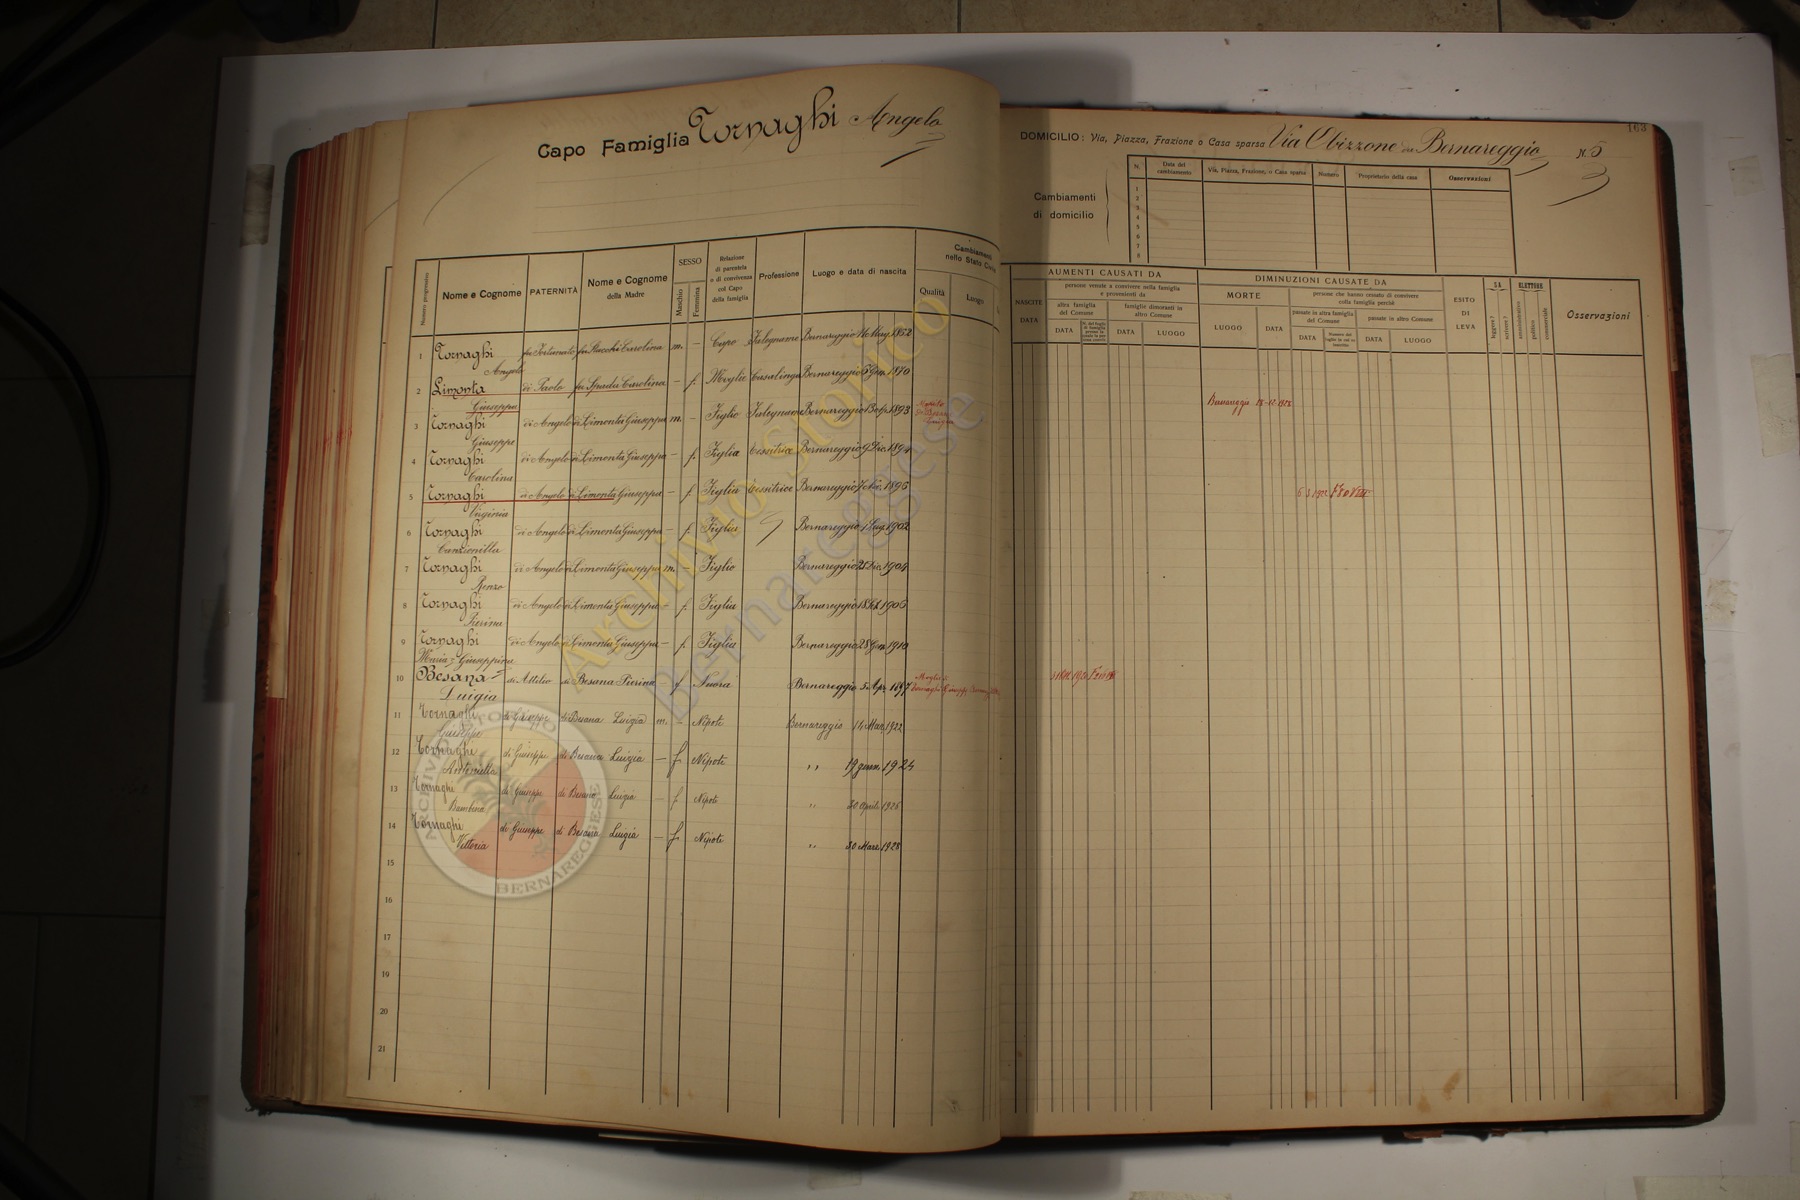 163
Capo Famiglia Tornaghi Angelo
DOMICILIO: Via, Piazza, Frazione o Casa sparsa Via Obizzone Bernareggio N. 5
Cambiamenti di domicilio
N. Data del cambiamento Via, Piazza, Frazione, o Casa sparsa Numero Proprietario della casa Osservazioni
1
2
3
4
5
6
7
8
Numero progressivo Nome e Cognome PATERNITÀ Nome e Cognome della Madre SESSO Maschio Femmina Relazione di parentela o di convivenza col Capo della famiglia Professione Luogo e data di nascita Cambiamenti nello Stato Civile Qualità Luogo
NASCITE DATA AUMENTI CAUSATI DA persone venute a convivere nella famiglia e provenienti da altra famiglia del Comune DATA famiglie dimoranti in altro Comune DATA LUOGO
DIMINUZIONI CAUSATE DA MORTE LUOGO DATA persone che hanno cessato di convivere colla famiglia perchè passate in altra famiglia del Comune DATA passate in altro Comune DATA LUOGO
ESITO DI LEVA SA leggere? scrivere? ELETTORE amministrativo politico commerciale Osservazioni
1 Tornaghi Angelo fu Fortunato fu Stucchi Carolina m. – Capo Falegname Bernareggio Mag. 1862
2 Limonta Giuseppa di Paolo fu Spada Carolina – f. Moglie Casalinga Bernareggio 6 Gen. 1870 Bernareggio
3 Tornaghi Giuseppe di Angelo di Limonta Giuseppa m. – Figlio Falegname Bernareggio 1893
4 Tornaghi Carolina di Angelo di Limonta Giuseppa – f. Figlia Bernareggio 9 Dic. 1894
5 Tornaghi Virginia di Angelo di Limonta Giuseppa – f. Figlia Tessitrice Bernareggio
6 Tornaghi di Angelo di Limonta Giuseppa – f. Figlia Bernareggio 1 Lug. 1902
7 Tornaghi Renzo di Angelo di Limonta Giuseppa m. – Figlio Bernareggio 25 Dic. 1904
8 Tornaghi Pierina di Angelo di Limonta Giuseppa – f. Figlia Bernareggio 18
9 Tornaghi Maria Giuseppina di Angelo di Limonta Giuseppa – f. Figlia Bernareggio 28 Gen. 1910
10 Besana Luigia di Attilio di Besana Pierina – f Nuora Bernareggio 5 Apr. 1897
11 Tornaghi Giuseppe di Giuseppe di Besana Luigia m. – Nipote Bernareggio 14 Mar. 1922
12 Tornaghi Antonietta di Giuseppe di Besana Luigia – f Nipote " 19 genn. 1924
13 Tornaghi Bambina di Giuseppe di Besana Luigia – f. Nipote " 30 Aprile 1926
14 Tornaghi Vittoria di Giuseppe di Besana Luigia – f Nipote " 30 Marz. 1928
15
16
17
18
19
20
21
Archivio Storico
Bernareggese
ARCHIVIO STORICO
BERNAREGGESE